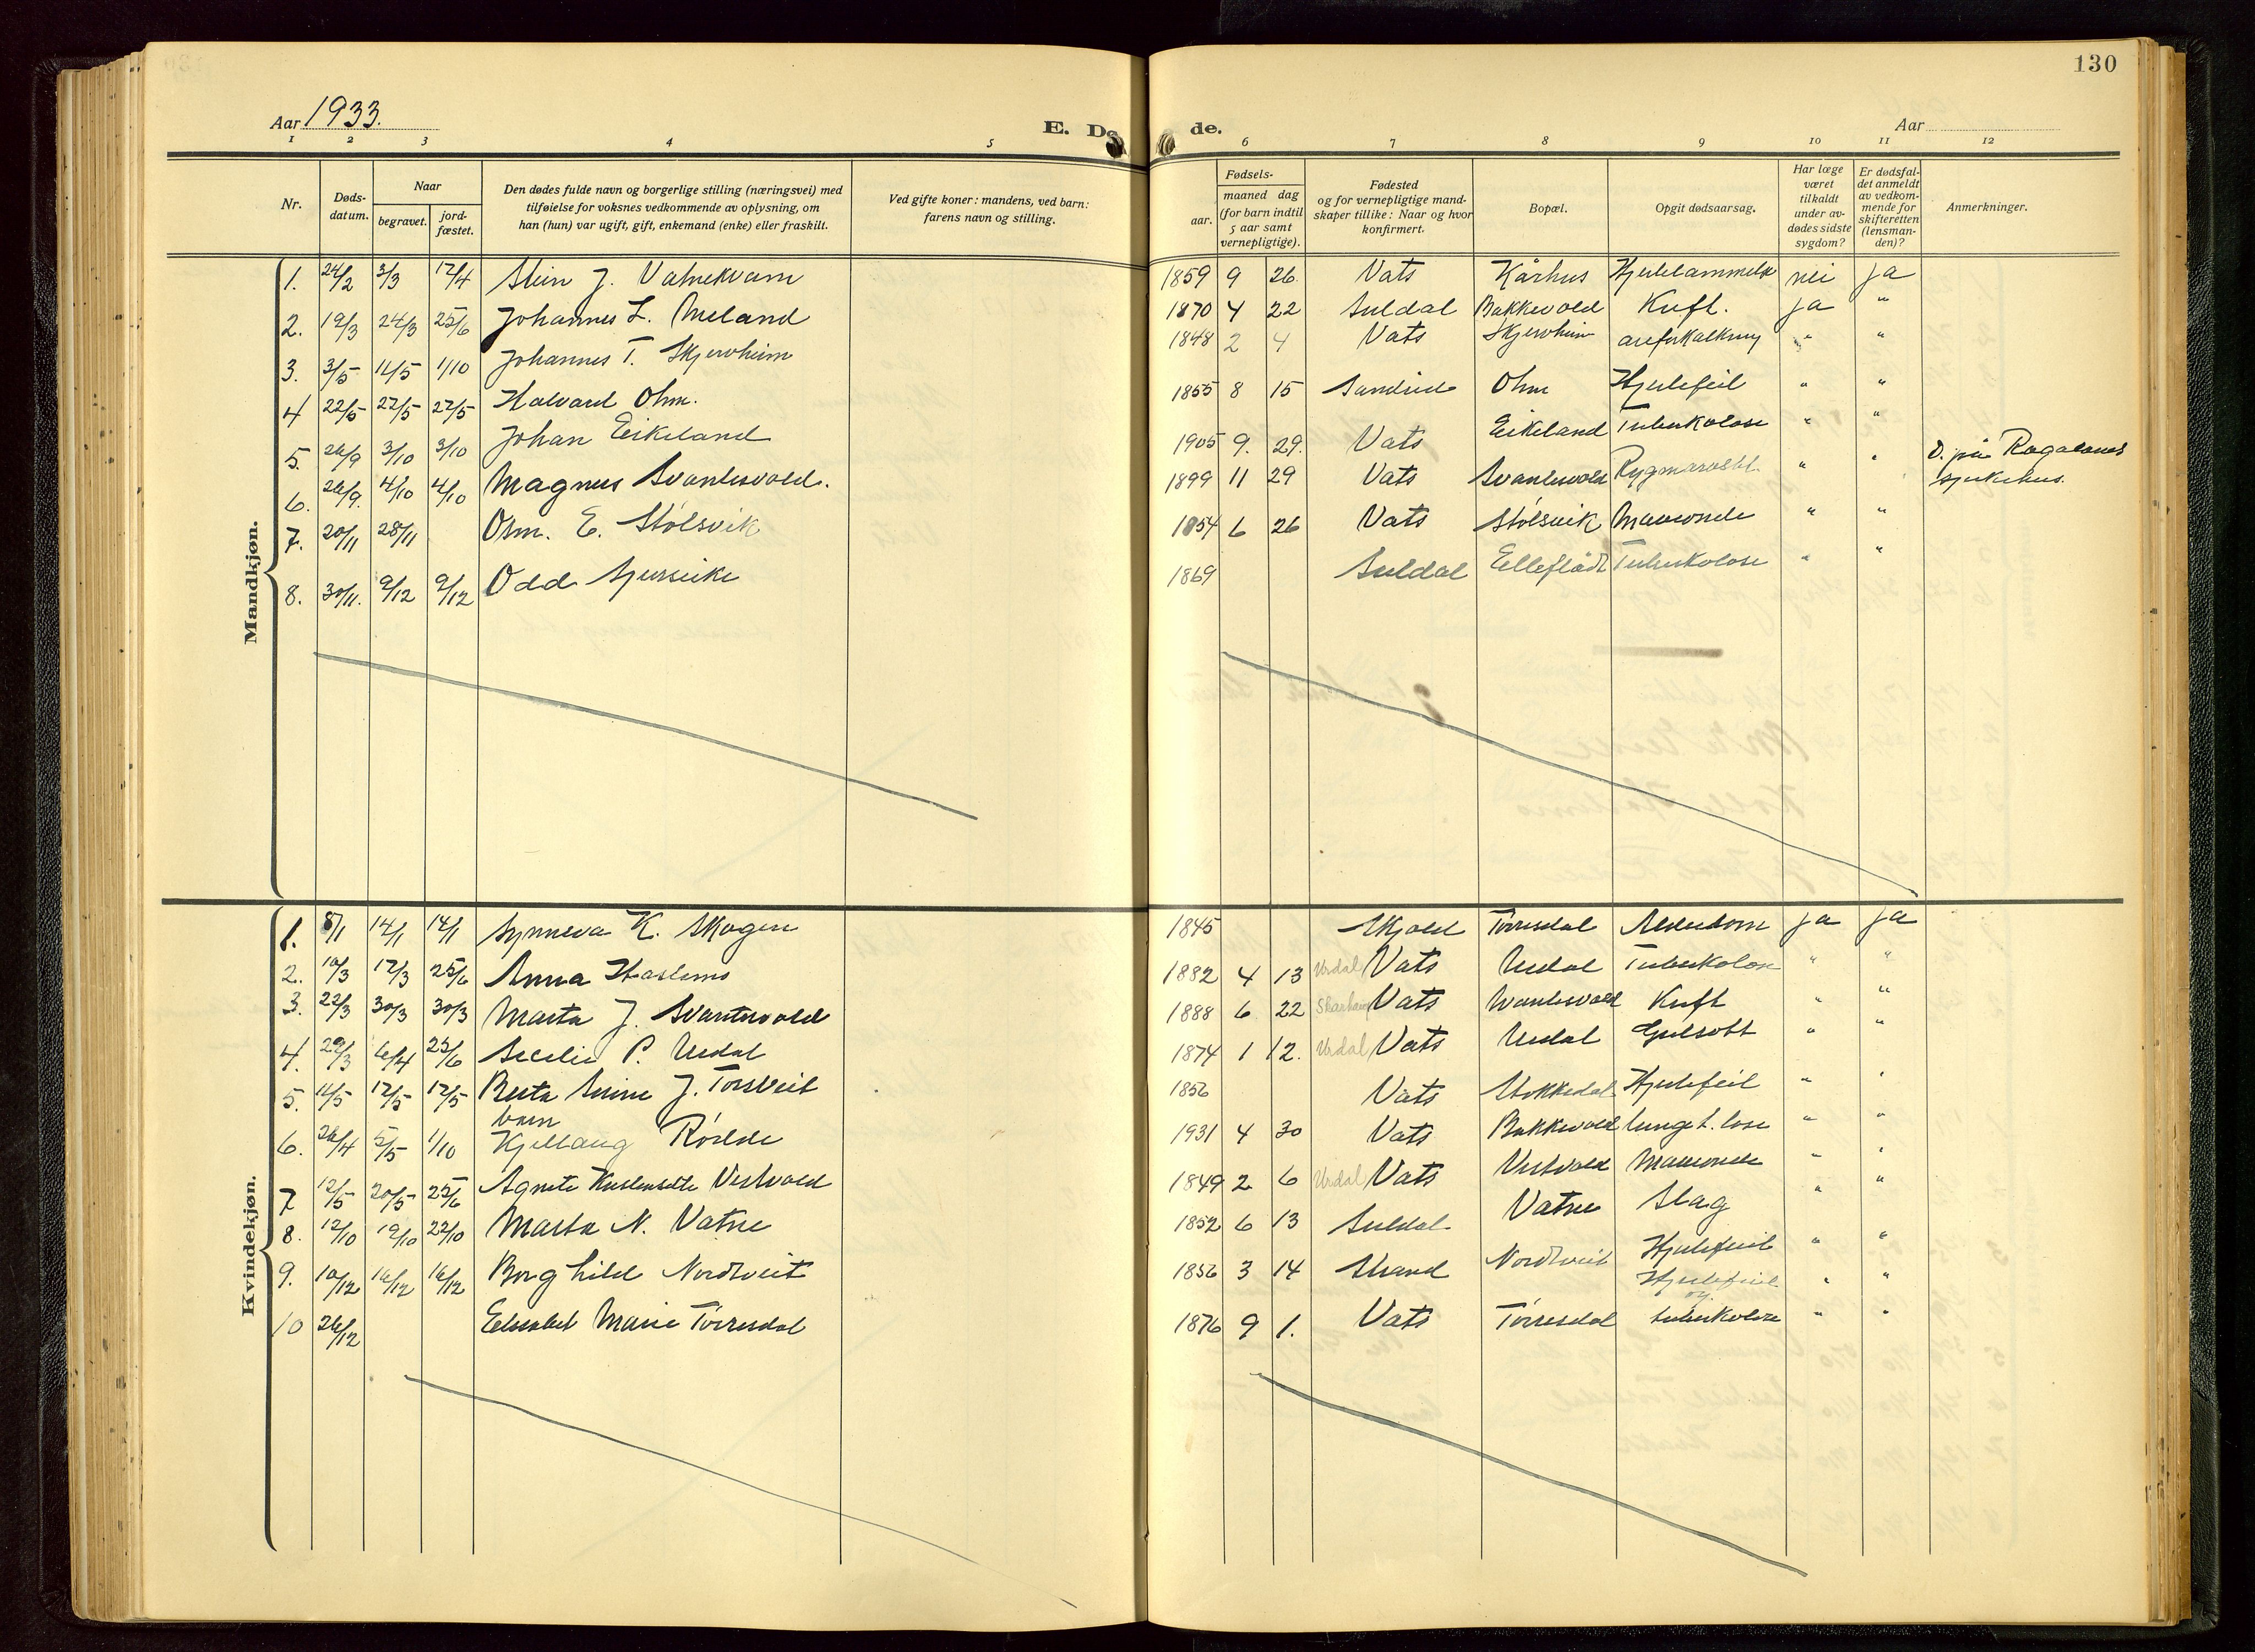 130
Aar 1933.
E. Dø
de.
Aar
1 2 3 4 5 6 7 8 9 10 11 12
Nr.
Døds-
datum.
Naar
begravet.
jord-
fæstet.
Den dødes fulde navn og borgerlige stilling (næringsvei) med
tilføielse for voksnes vedkommende av oplysning, om
han (hun) var ugift, gift, enkemand (enke) eller fraskilt.
Ved gifte koner: mandens, ved barn:
farens navn og stilling.
Fødsels-
aar.
maaned dag
(for barn indtil
5 aar samt
vernepligtige).
Fødested
og for vernepligtige mand-
skaper tillike: Naar og hvor
konfirmert.
Bopæl.
Opgit dødsaarsag.
Har læge
været
tilkaldt
under av-
dødes sidste
sygdom?
Er dødsfal-
det anmeldt
av vedkom-
mende for
skifteretten
(lensman-
den)?
Anmerkninger.
Mandkjøn.
1. 24/2 3/3 17/4 Stein J. Vatnekvam 1859 9 26. Vats Kårhus nei ja
2. 19/3 24/3 25/6 Johannes L. Meland 1870 4 22 Suldal Bakkevold Kreft. ja "
3. 3/5 11/5 1/10 Johannes T. Skjerheim 1848 2 4 Vats Skjerheim " "
4 22/5 27/5 27/5 Halvard Ohm. 1855 8 15 Sandeid Ohm Hjertefeil " "
5. 26/9 3/10 3/10 Johan Eikeland 1905 9. 29. Vats Eikeland Tuberkolose " "
6. 26/9. 4/10 4/10 Magnus Svantesvold. 1899 11 29 Vats Svantesvold " " D. på Rogalands
sjukehus.
7. 20/11 28/11 Osm. E. Stølsvik 1854 6 26 Vats Stølsvik " "
8. 30/11. 9/12 9/12 Odd 1869 Suldal Tuberkolose " "
Kvindekjøn.
1. 8/1 14/1 14/1 Synneva K. Skogen 1845 Skjold Tørresdal Alderdom ja ja
2. 10/3 17/3 25/6 Anna Haslemo 1882 4 13 Urdal Vats Urdal Tuberkolose " "
3. 22/3 30/3 30/3 Marta J. Svantesvold 1888 6 22 Vats Svantesvold Kreft " "
4. 29/3 6/4 25/6 P. Urdal 1874 1 12. Urdal Vats Urdal Gulsott " "
5. 11/5 17/5 17/5 Berta J. Torsteit 1856 Vats Stokkedal Hjertefeil " "
barn
6. 26/4 5/5 1/10 Kjellaug 1931 4 30 Vats Bakkevold " "
7 12/5 20/5 25/6 Agnete Vestvold 1849 2 6 Urdal Vats Vestvold " "
8. 12/10 19/10 22/10 Marta N. Vatne 1852 6 13 Suldal Vatne Slag " "
9. 10/12 16/12 16/12 Borghild Nordtveit 1856 3 14 Strand Nordtveit Hjertefeil " "
10 26/12 Elisabet Marie Tørresdal 1876 9 1. Vats Tørresdal Hjertefeil
og
tuberkolose " "